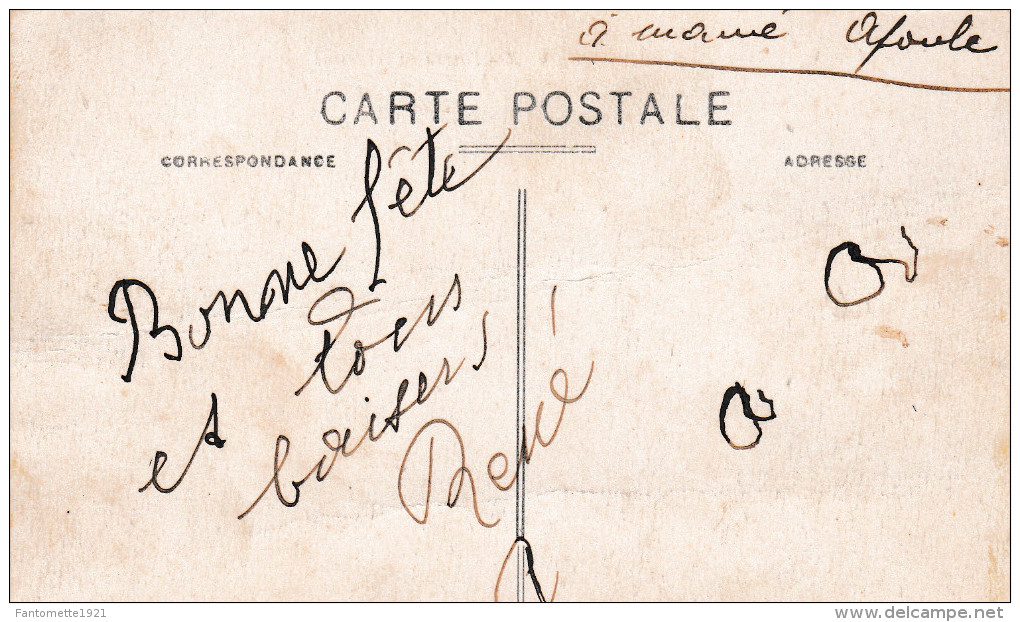 à mamé
CARTE POSTALE
CORRESPONDANCE
ADRESSE
Bonne fête
et tous
baisers
René
Fantomette1921
www.delcampe.net